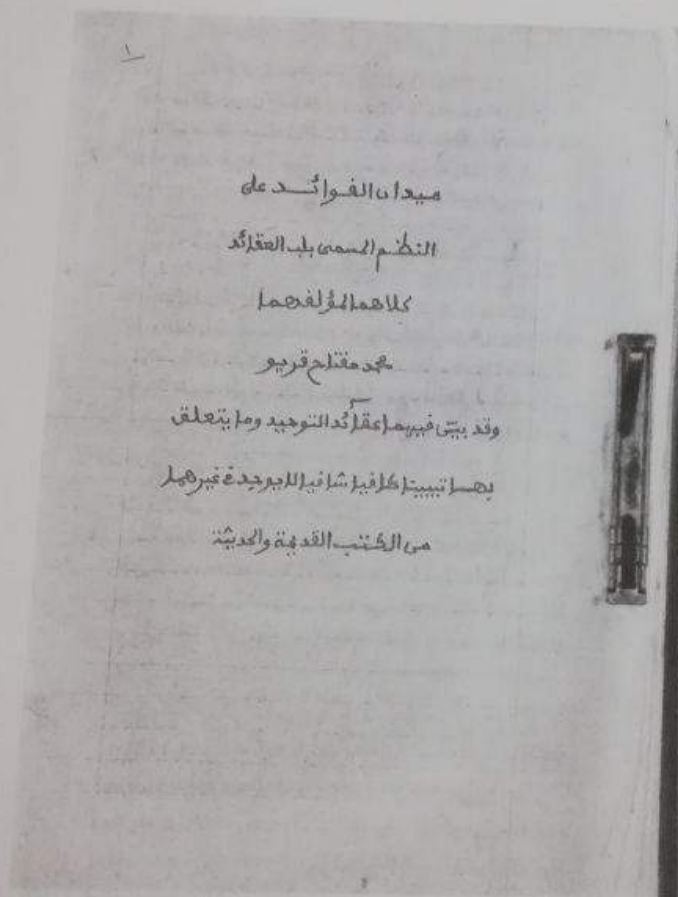 ١
ميدان الفوائد على
النظم المسمى بلب العقائد
كلاهما لمؤلفهما
محمد مفتاح قريو
وقد بيّن فيهما عقائد التوحيد وما يتعلق
بهما تبيينا كافيا شافيا لا يوجد في غيرهما
من الكتب القديمة والحديثة